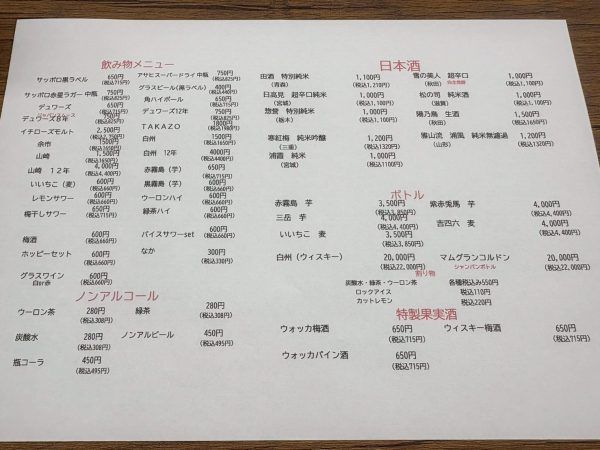 飲み物メニュー
サッポロ黒ラベル 650円
(税込715円)
サッポロ赤星ラガー 中瓶 750円
(税込825円)
デュワーズ 650円
(税込715円)
デュワーズ8年 750円
(税込825円)
イチローズモルト 2,500円
(税込2,750円)
余市 1500円
(税込1650円)
山崎 1,500円
(税込1650円)
山崎 12年 4,000円
(税込4,400円)
いいちこ(麦) 600円
(税込660円)
レモンサワー 600円
(税込660円)
梅干しサワー 650円
(税込715円)
梅酒 600円
(税込660円)
ホッピーセット 600円
(税込660円)
グラスワイン 600円
白or赤 (税込660円)
アサヒスーパードライ 中瓶 750円
(税込825円)
グラスビール(黒ラベル) 400円
(税込440円)
角ハイボール 650円
(税込715円)
デュワーズ12年 750円
(税込825円)
TAKAZO 1800円
(税込1980円)
白州 1500円
(税込1650円)
白州 12年 4000円
(税込4400円)
赤霧島(芋) 650円
(税込715円)
黒霧島(芋) 600円
(税込660円)
ウーロンハイ 600円
(税込660円)
緑茶ハイ 600円
(税込660円)
バイスサワーset 650円
(税込715円)
なか 300円
(税込330円)
ノンアルコール
ウーロン茶 280円
(税込308円)
緑茶 280円
(税込308円)
炭酸水 280円
(税込308円)
ノンアルビール 450円
(税込495円)
瓶コーラ 450円
(税込495円)
日本酒
田酒 特別純米 1,100円
(青森) (税込1,210円)
雪の美人 超辛口 1,000円
(秋田) (税込1,100円)
日高見 超辛口純米 1,000円
(宮城) (税込1,100円)
松の司 純米酒 1,000円
(滋賀) (税込1,100円)
惣誉 特別純米 1,000円
(栃木) (税込1,100円)
陽乃鳥 生酒 1,500円
(秋田) (税込1650円)
寒紅梅 純米吟醸 1,200円
(三重) (税込1320円)
雅山流 浦風 純米無濾過 1,200円
(山形) (税込1320円)
浦霞 純米 1,000円
(宮城) (税込1100円)
ボトル
赤霧島 芋 3,500円
(税込3,850円)
紫赤兎馬 芋 4,000円
(税込4,400円)
三岳 芋 4,000円
(税込4,400円)
吉四六 麦 4,000円
(税込4,400円)
いいちこ 麦 3,500円
(税込3,850円)
白州(ウィスキー) 20,000円
(税込22,000円)
マムグランコルドン 20,000円
シャンパンボトル (税込22,000円)
割り物
炭酸水・緑茶・ウーロン茶 各種税込み550円
ロックアイス 税込110円
カットレモン 税込220円
特製果実酒
ウォッカ梅酒 650円
(税込715円)
ウィスキー梅酒 650円
(税込715円)
ウォッカパイン酒 650円
(税込715円)